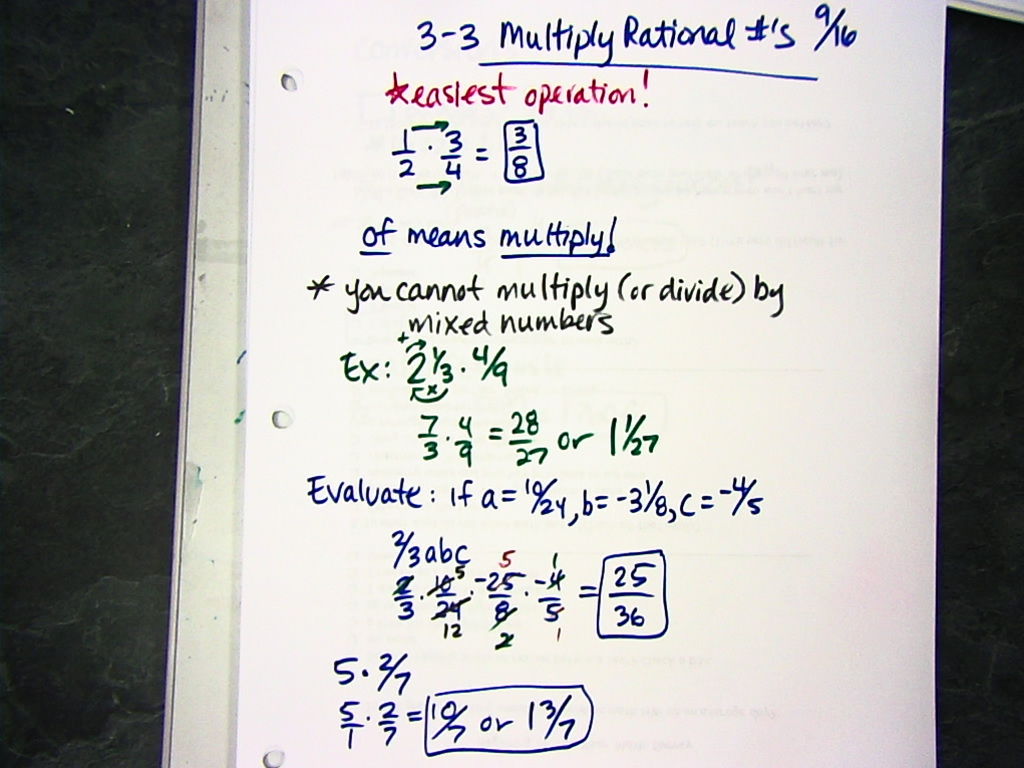 3-3 Multiply Rational #'s 9/16
*easiest operation!
1/2 · 3/4 = 3/8
of means multiply!
* you cannot multiply (or divide) by
mixed numbers
+
Ex: 2 1/3 · 4/9
x
7/3 · 4/9 = 28/27 or 1 1/27
Evaluate: if a = 10/24, b = -3 1/8, c = -4/5
2/3 abc
5 5 1
2/3 · 10/24 · -25/8 · -4/5 = 25/36
12 2 1
5 · 2/7
5/1 · 2/7 = 10/7 or 1 3/7